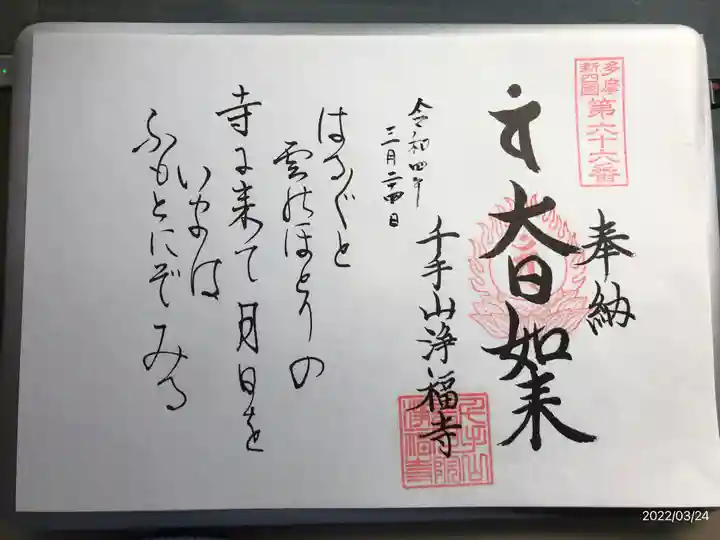 多摩
新四國
第六十六番
奉納
大日如来
千手山浄福寺
令和四年
三月二十四日
はるばると
雲のほとりの
寺に来て月日を
いまは
ふもとにぞみる
2022/03/24